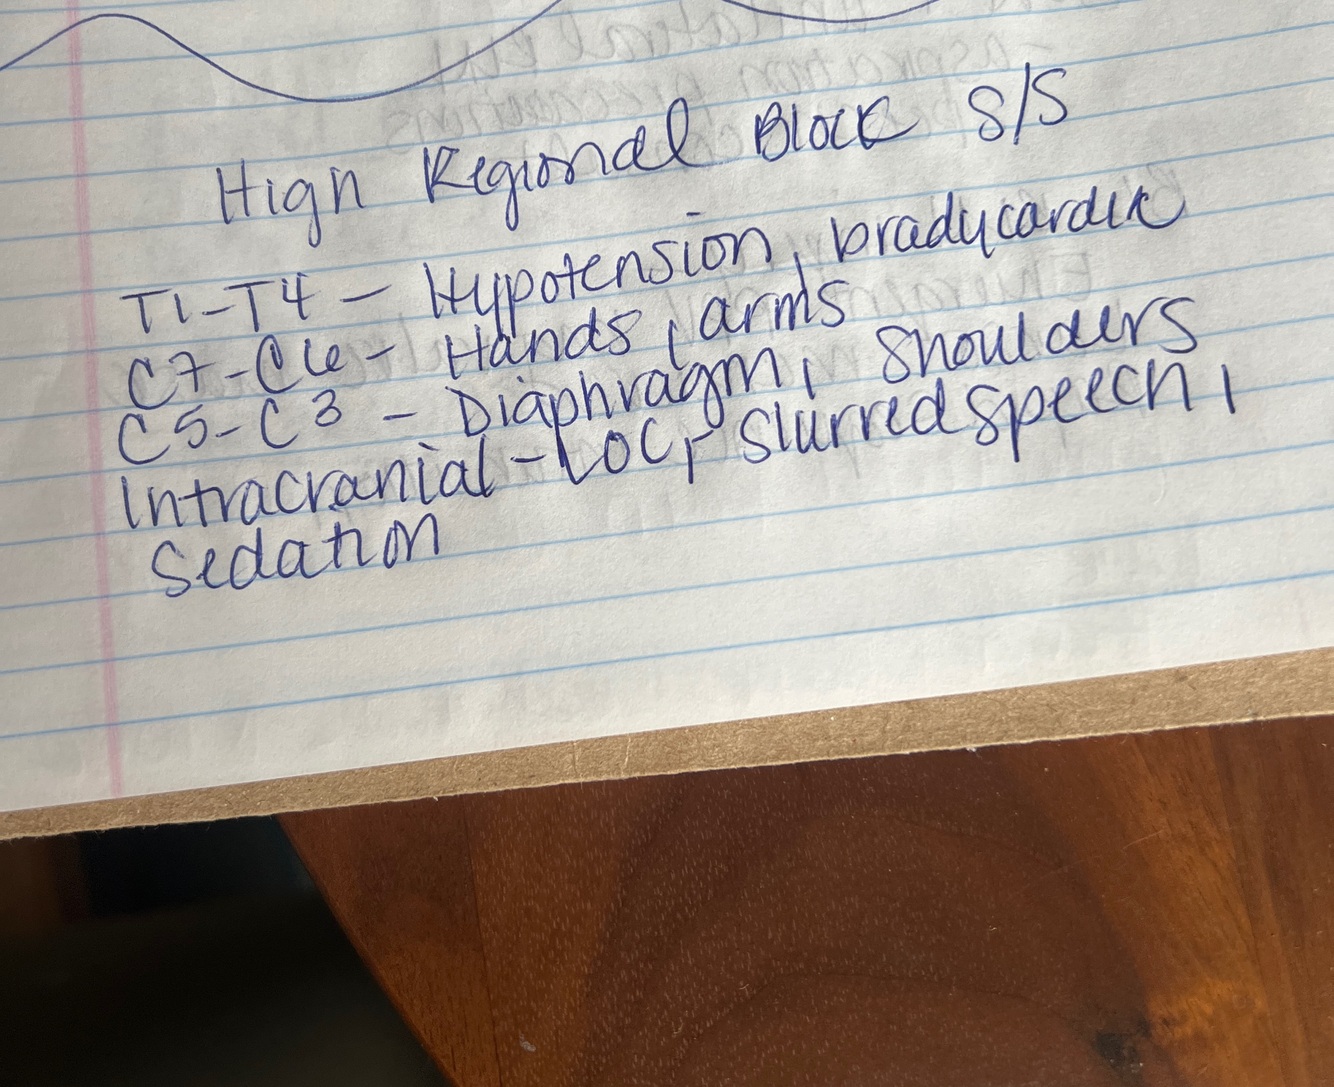 High Regional Block S/S
T1-T4 - Hypotension, bradycardic
C7-C6 - Hands, arms
C5-C3 - Diaphragm, shoulders
Intracranial - LOC, slurred speech,
sedation